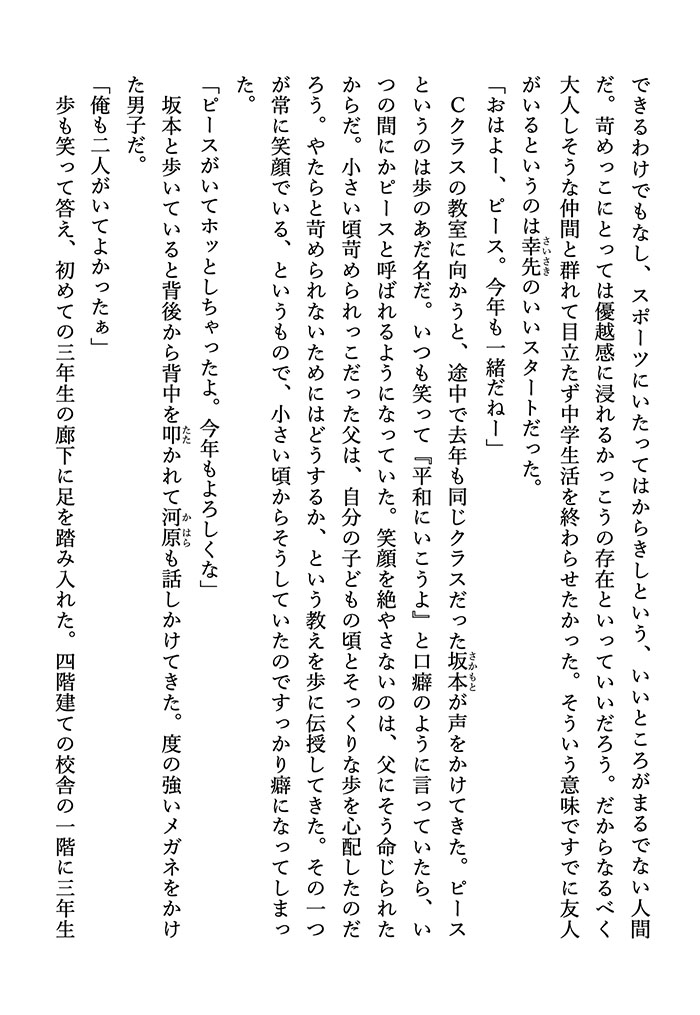 できるわけでもなし、スポーツにいたってはからきしという、いいところがまるでない人間
だ。苛めっこにとっては優越感に浸れるかっこうの存在といっていいだろう。だからなるべく
大人しそうな仲間と群れて目立たず中学生活を終わらせたかった。そういう意味ですでに友人
がいるというのは幸先さいさきのいいスタートだった。
「おはよー、ピース。今年も一緒だねー」
　Ｃクラスの教室に向かうと、途中で去年も同じクラスだった坂本さかもとが声をかけてきた。ピース
というのは歩のあだ名だ。いつも笑って『平和にいこうよ』と口癖のように言っていたら、い
つの間にかピースと呼ばれるようになっていた。笑顔を絶やさないのは、父にそう命じられた
からだ。小さい頃苛められっこだった父は、自分の子どもの頃とそっくりな歩を心配したのだ
ろう。やたらと苛められないためにはどうするか、という教えを歩に伝授してきた。その一つ
が常に笑顔でいる、というもので、小さい頃からそうしていたのですっかり癖になってしまっ
た。
「ピースがいてホッとしちゃったよ。今年もよろしくな」
　坂本と歩いていると背後から背中を叩たたかれて河原かはらも話しかけてきた。度の強いメガネをかけ
た男子だ。
「俺も二人がいてよかったぁ」
　歩も笑って答え、初めての三年生の廊下に足を踏み入れた。四階建ての校舎の一階に三年生